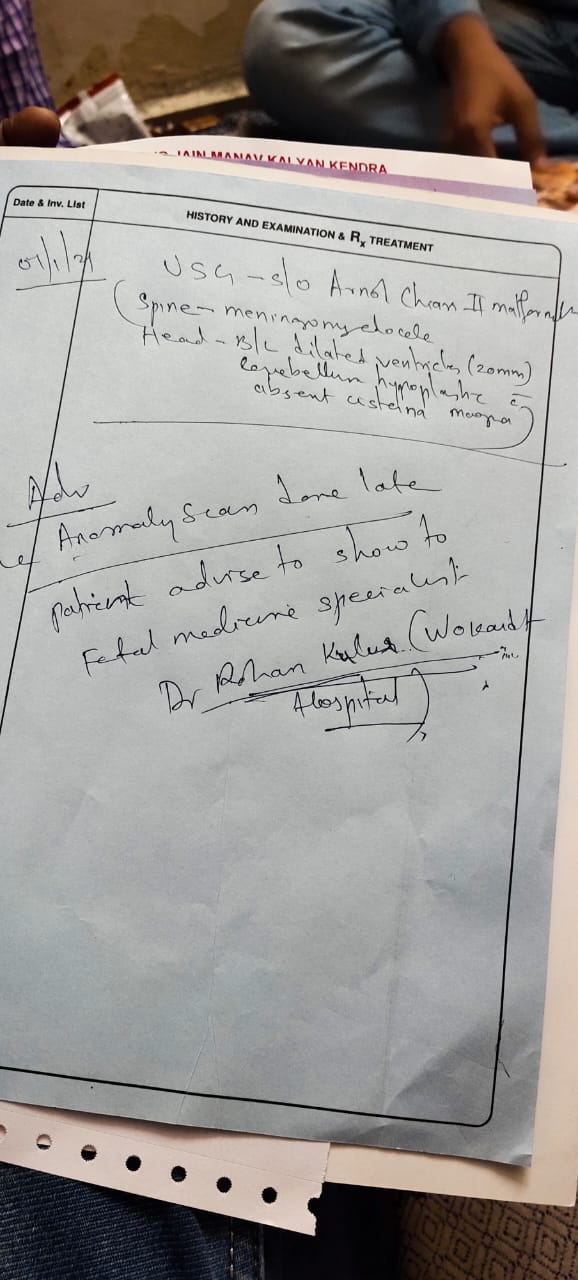 JAIN MANAV KALYAN KENDRA
Date & Inv. List
HISTORY AND EXAMINATION & Rx TREATMENT
USG - s/o Arnol Chiari II malform
(Spine - meningomyelocele
Head - B/L dilated ventricles (20mm)
Cerebellum hypoplastic c̄
absent cisterna magna)
Adv
Anomaly Scan done late
patient advise to show to
Fetal medicine specialist
Dr Rohan (Wokardt
Hospital)